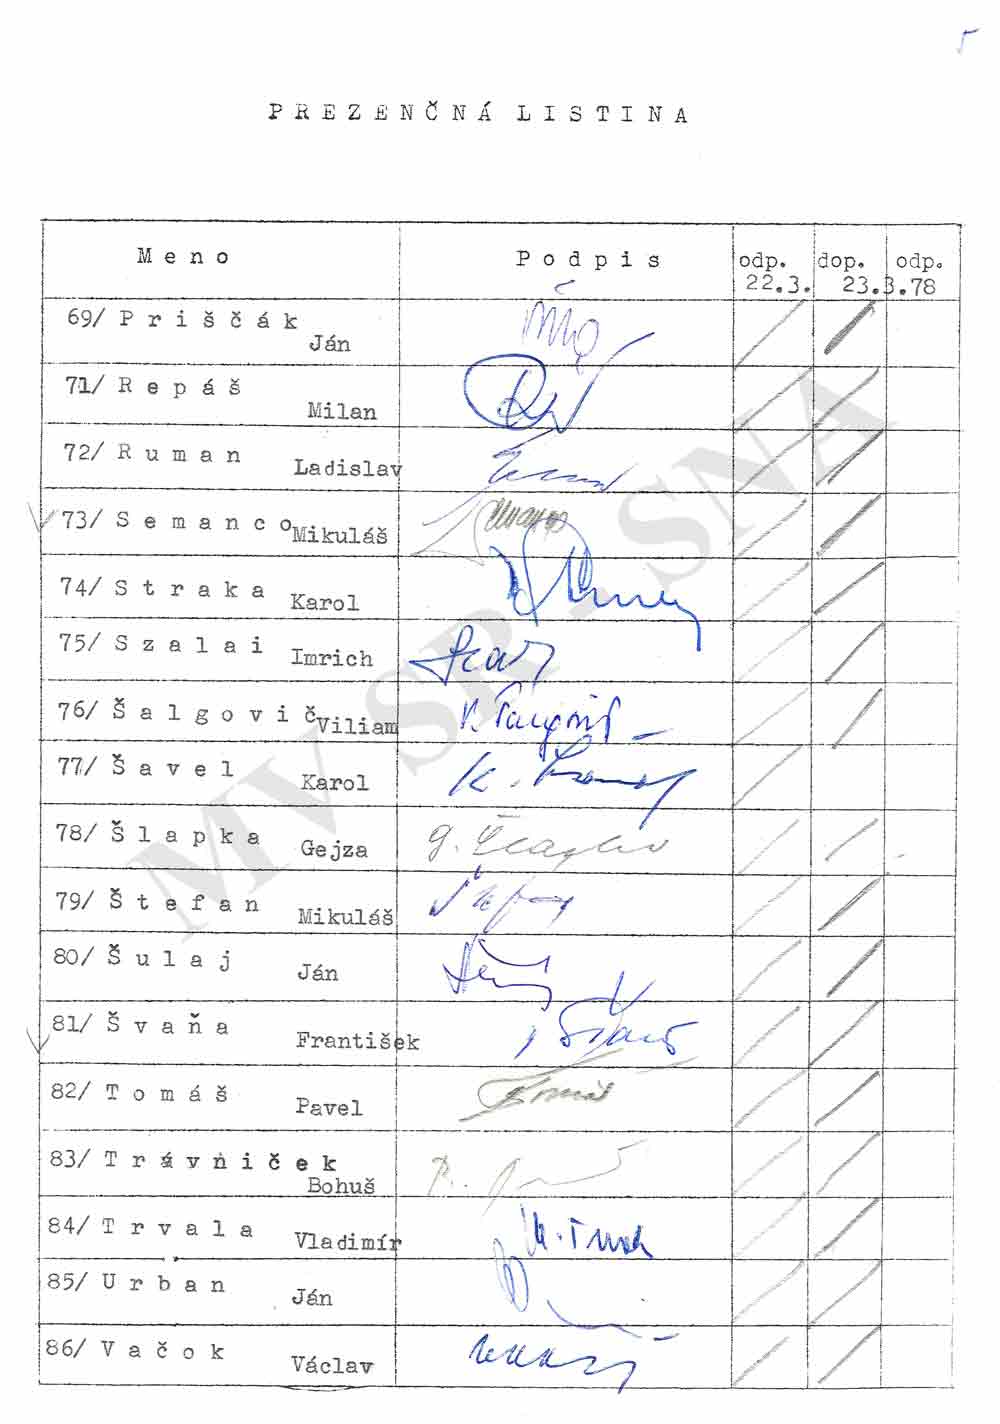 5
PREZENČNÁ LISTINA
Meno Podpis odp. dop. odp.
22.3. 23.3.78
69/ Priščák
Ján
71/ Repáš
Milan
72/ Ruman
Ladislav
73/ Semanco
Mikuláš
74/ Straka
Karol
75/ Szalai
Imrich
76/ Šalgovič
Viliam
77/ Šavel
Karol
78/ Šlapka
Gejza
79/ Štefan
Mikuláš
80/ Šulaj
Ján
81/ Švaňa
František
82/ Tomáš
Pavel
83/ Trávniček
Bohuš
84/ Trvala
Vladimír
85/ Urban
Ján
86/ Vačok
Václav
MV SR - SNA